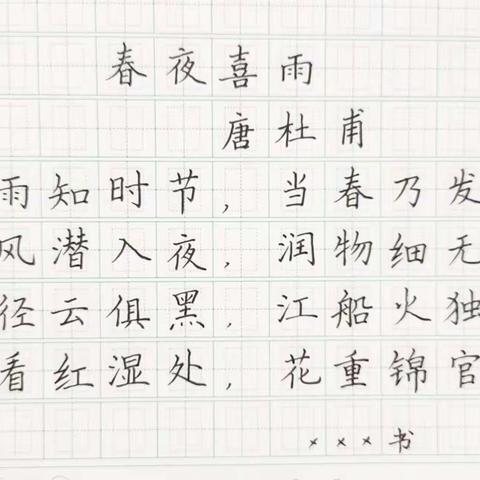 春夜喜雨
唐杜甫
雨知时节，当春乃发
风潜入夜，润物细无
径云俱黑，江船火独
看红湿处，花重锦官
×××书